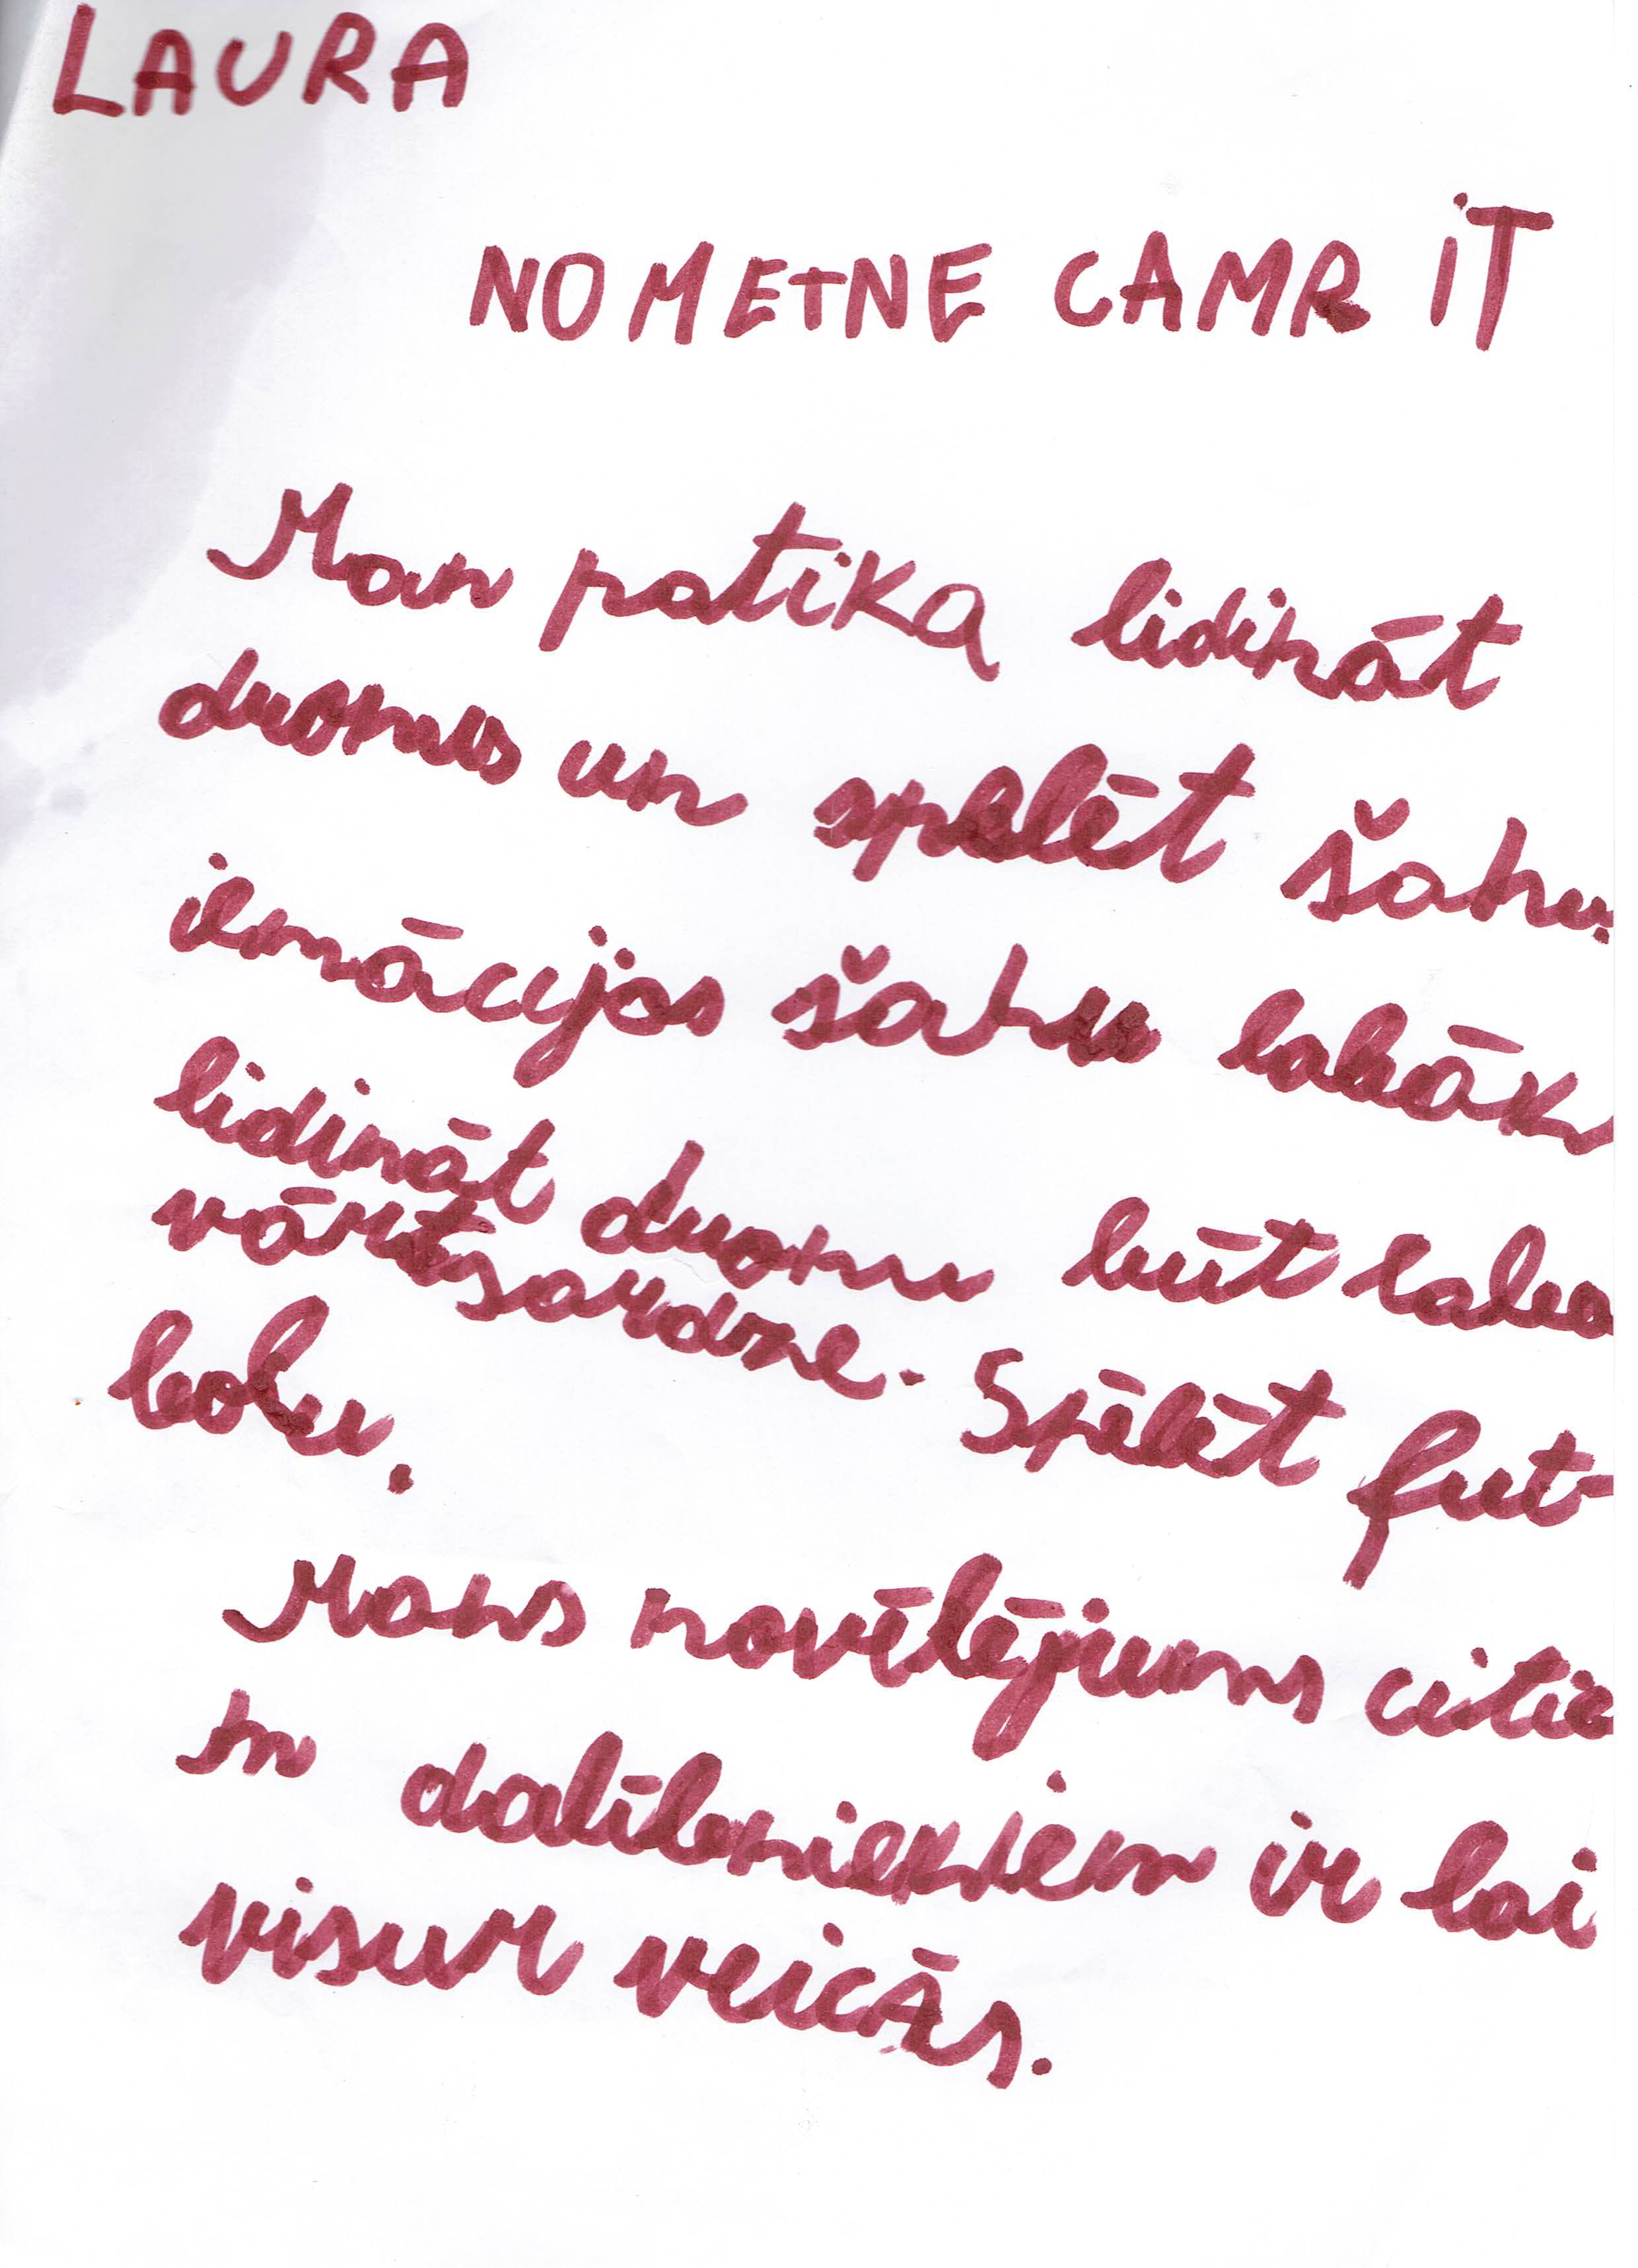 LAURA
NOMETNE CAMP IT
Man patika lidināt
dronus un spēlēt šahu.
iemācijos šahu labāk
lidināt dronu būt laba
vārtsardze. Spēlēt fut-
bolu.
Mans novēlējums citie
m dalībniekiem ir lai
visur veicās.